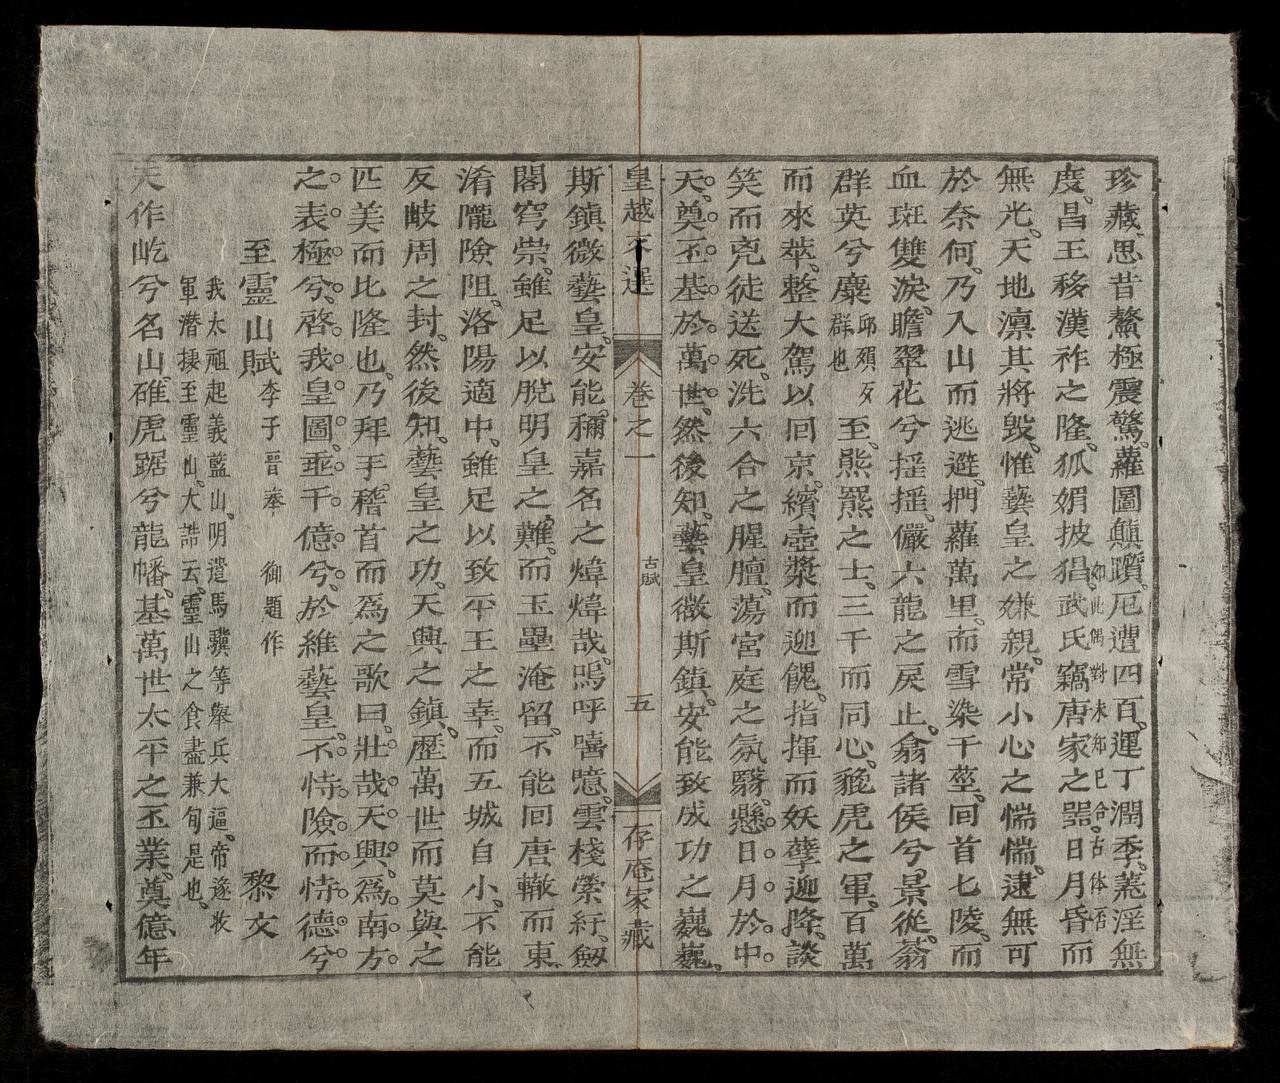 珍藏思昔鰲極震驚。蘿圖顛躓。厄遭四百。運丁潤季。蒸淫無
度。昌王移漢祚之隆。狐媚披猖。武氏竊唐家之器。日月昏而
如此偶對未知已合古体否
無光。天地凛其將毀。惟藝皇之嫌親。常小心之惴惴。逮無可
於奈何。乃入山而逃避。捫蘿萬里。而雪染千莖。回首七陵。而
血斑雙淚。瞻翠花兮揺揺。儼六龍之戾止。翕諸侯兮景從。蓊
群英兮麋群邱殞反群也至。熊羆之士。三千而同心。貔虎之軍。百萬
而來萃。整大駕以回京。繽壺漿而迎餽。指揮而妖孽迎降。談
笑而兇徒送死。洗六合之腥膻。蕩宮庭之氛翳。懸日月於中
天。奠丕基於萬世。然後知。藝皇微斯鎮。安能致成功之巍巍。
皇越文選 卷之一 古賦 五 存庵家藏
斯鎮微藝皇。安能稱嘉名之煒煒哉。嗚呼嘻噫。雲棧縈紆。劔
閣穹崇。雖足以脫明皇之難。而玉壘淹留。不能回唐轍而東
淆隴險阻。洛陽適中。雖足以致平王之幸。而五城自小。不能
反岐周之封。然後知。藝皇之功。天興之鎮。歷萬世而莫與之
匹美而比隆也。乃拜手。稽首而爲之歌曰。壯哉天興。爲南方
之表極兮。啓我皇圖。垂千億兮。於維藝皇。不恃險而恃德兮
至靈山賦 李子晉奉 御題作 黎文
我太祖起義藍山。明遣馬騏等舉兵大逼。帝遂收
軍潛棲至靈山。大誥云。靈山之食盡兼旬是也。
天作屹兮名山。碓虎踞兮龍幡。基萬世太平之丕業。奠億年